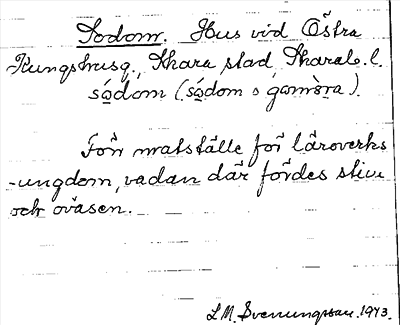 Sodom. Hus vid Östra
Kungshusg., Skara stad, Skarab. l.
sódom (sódom o gomòra).
Förr matställe för läroverks
-ungdom, vadan där fördes stim
och oväsen.
L.M. Svenungsson. 1943.